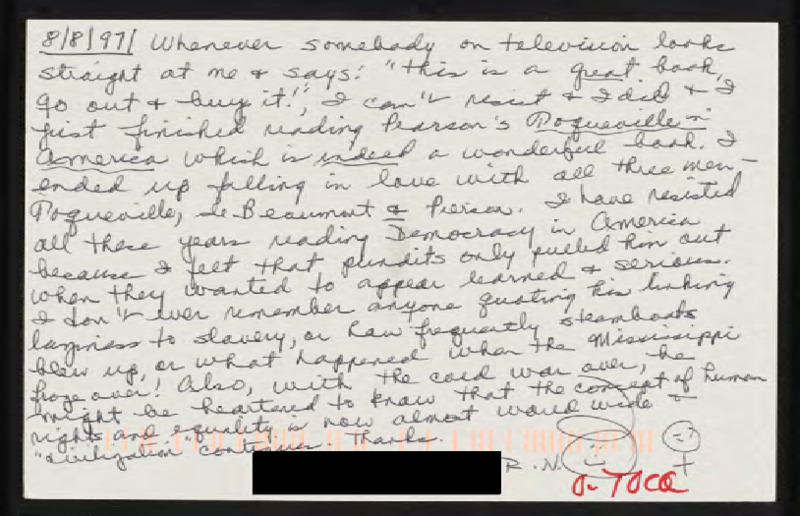 8/8/97/ Whenever somebody on television looks
straight at me & says: "this is a great book,
go out & buy it!", I can't resist & I did & I
just finished reading Pearson's Toqueville in
America which is indeed a wonderful book. I
ended up falling in love with all three men –
Toqueville, de Beaumont & Pierson. I have resisted
all these years reading Democracy in America
because I felt that pundits only pulled him out
when they wanted to appear learned & serious.
I don't ever remember anyone quoting his linking
laziness to slavery, or how frequently steamboats
blew up, or what happened when the Mississippi
froze over! Also, with the cold war over, he
might be heartened to know that the concept of human
rights and equality is now almost world wide &
"civilization" continues. Thanks.
R.N.
= ?
O-TOCQ